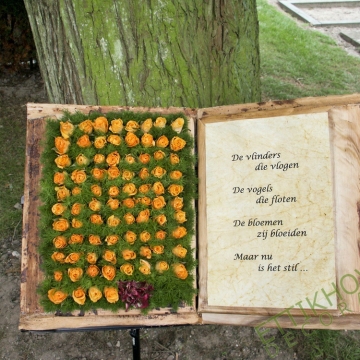 De vlinders
die vlogen
De vogels
die floten
De bloemen
zij bloeiden
Maar nu
is het stil ...